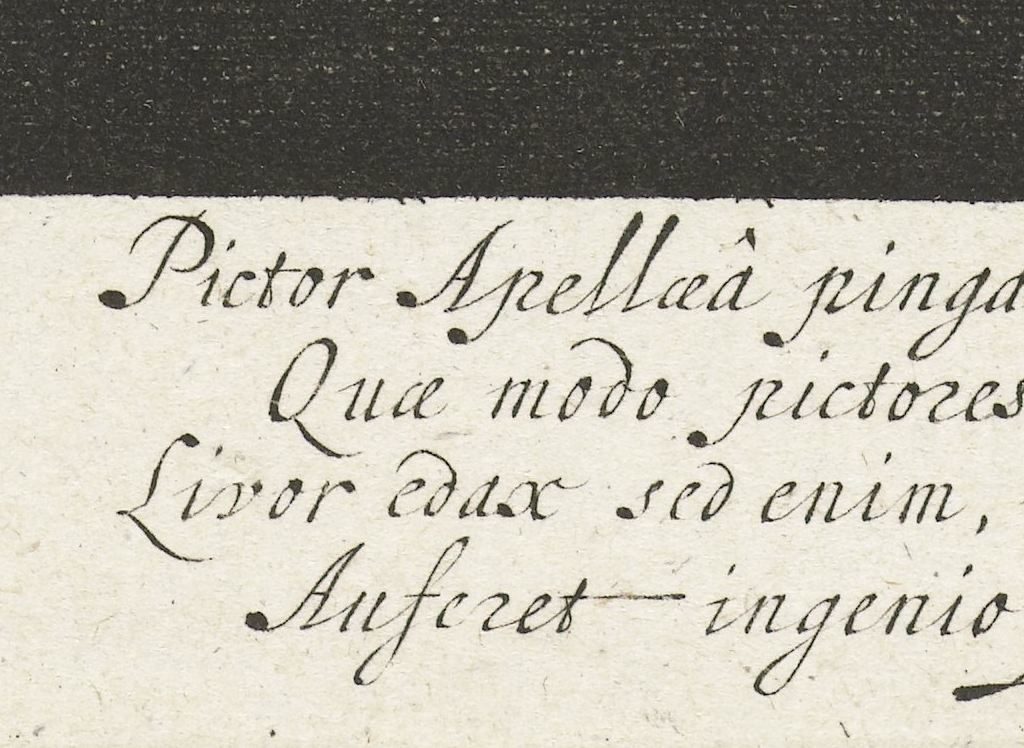 Pictor Apellæâ pinga
Quæ modo pictores
Livor edax sed enim,
Auferet ingenio